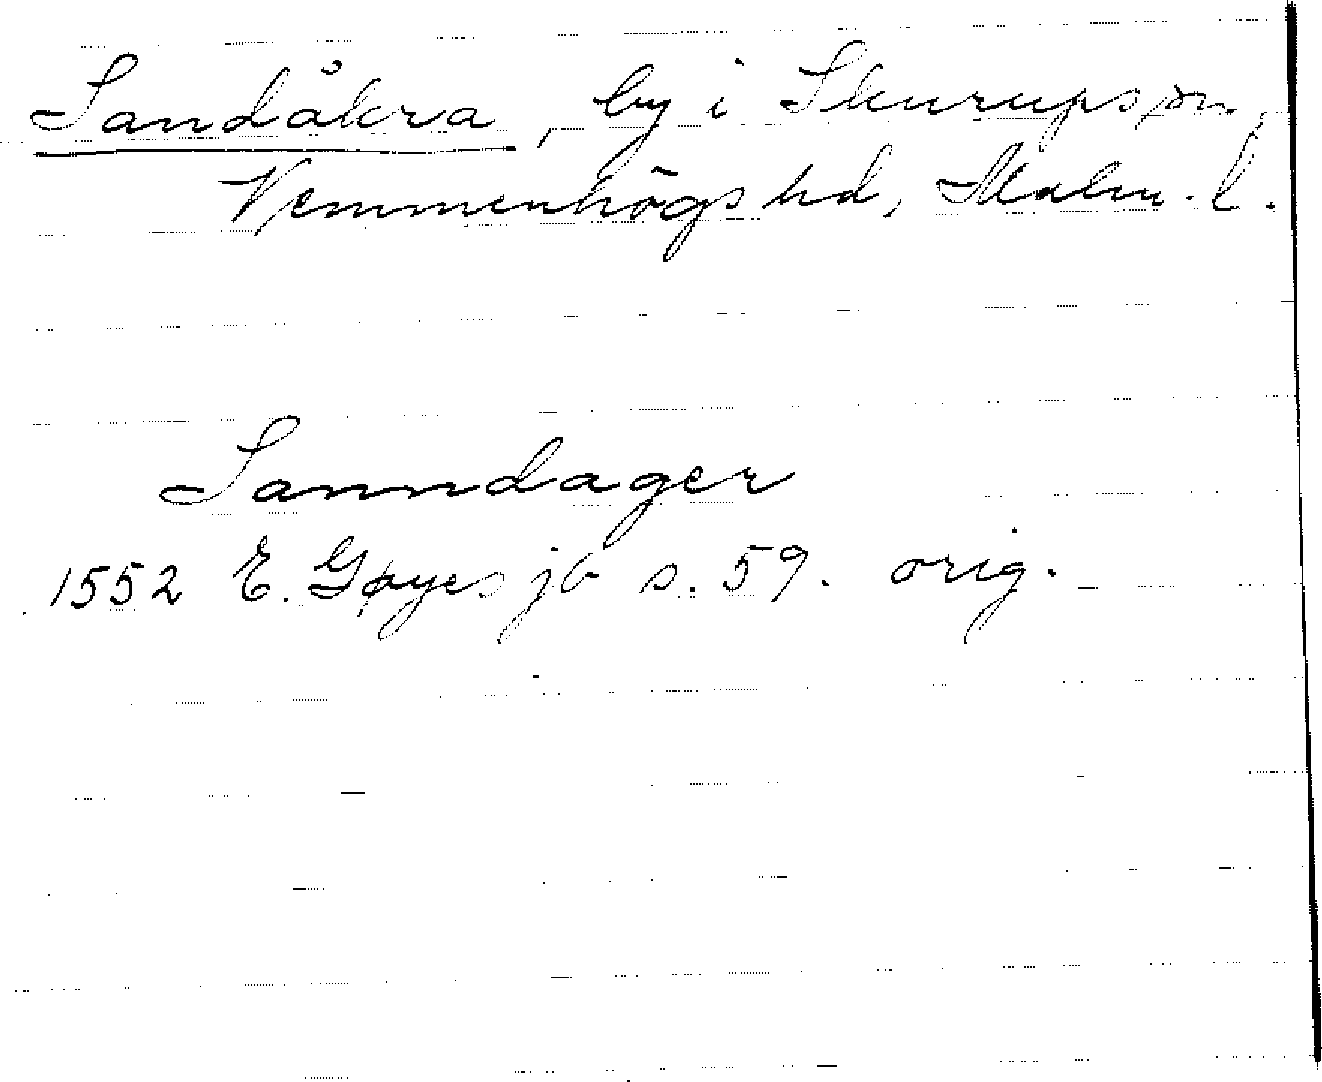 Sandåkra, by i Skurups sn,
Vemmenhögs hd, Malm. l.
Sanndager
1552 E. Gøyes jb s. 59. orig.